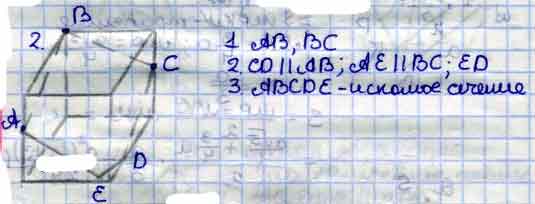 B
2.
C
A
D
E
1. AB, BC
2. CD || AB; AE || BC; ED
3. ABCDE - искомое сечение